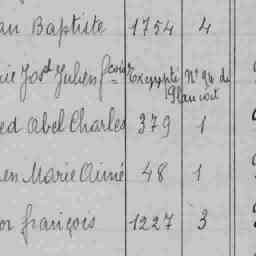 an Baptiste 1754 4
rie Jos.d Julien fcois Exempte N° 94 de
Plancoët
ed Abel Charles 379 1
en Marie Aimé 48 1
or françois 1227 3